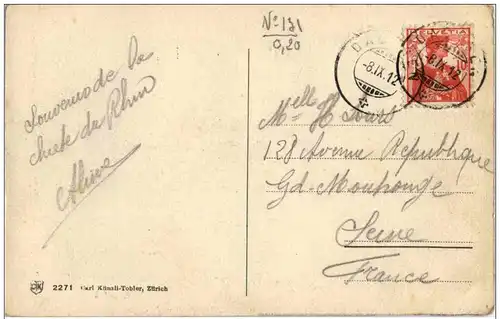 Nº 131
0,20
HELVETIA
-8.IX.12
-8.IX.12
Souvenir de la
chute du Rhin
Mell H
128 Avenue République
Gd-Montrouge
Seine
France
2271 Carl Künzli-Tobler, Zürich